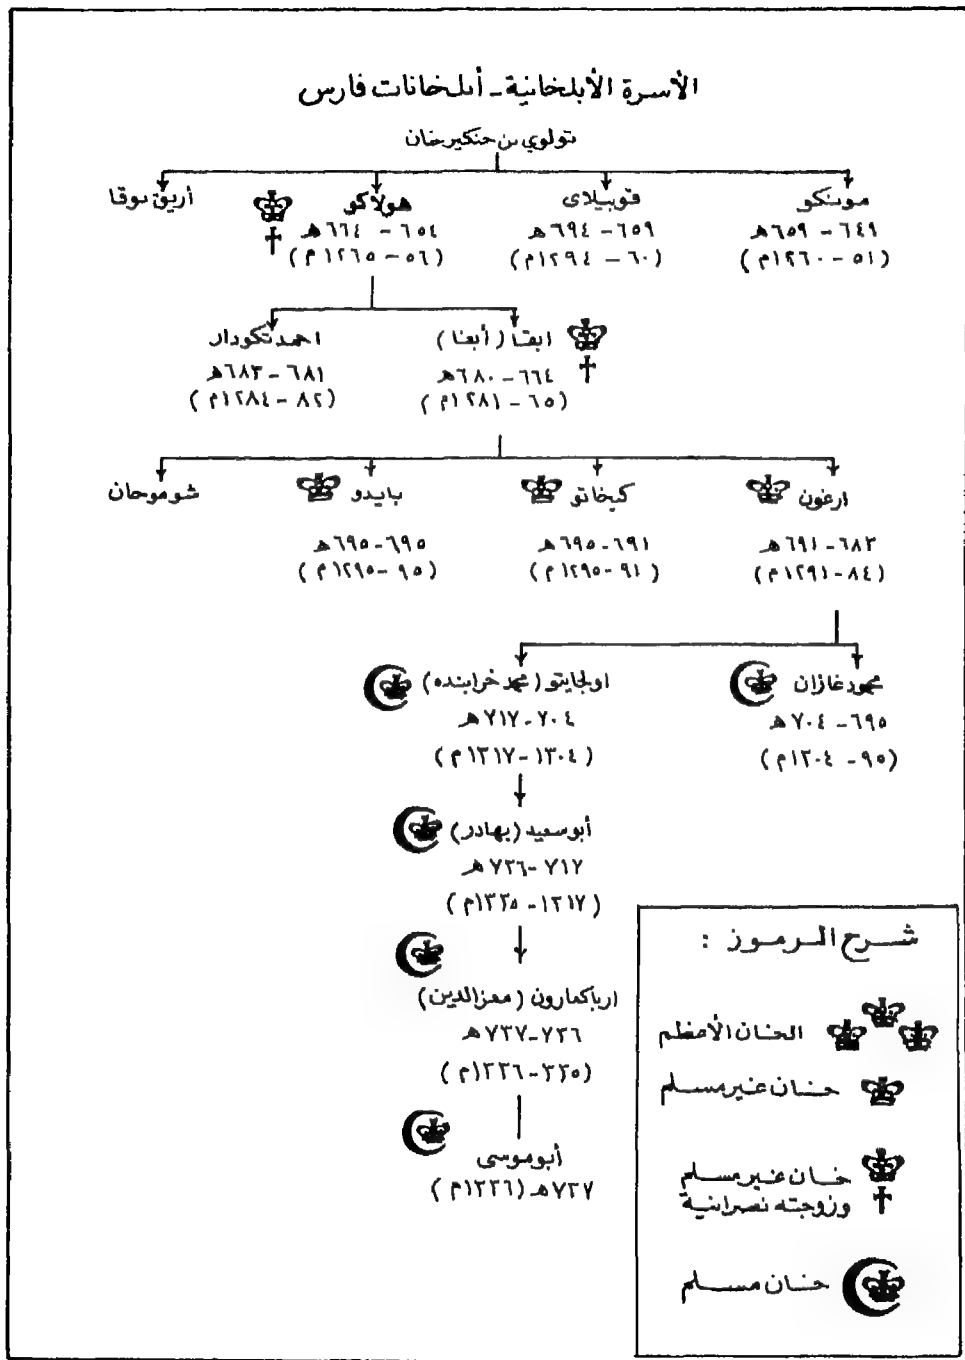 الأسرة الأيلخانية - أيلخانات فارس
تولوي بن جنكيز خان
مونكو
٦٤٩ - ٦٥٩ هـ
(٥١ - ١٢٦٠م)
قوبيلاي
٦٥٩ - ٦٩٤ هـ
(٦٠ - ١٢٩٤م)
هولاكو
٦٥٤ - ٦٦٤ هـ
(٥٦ - ١٢٦٥م)
أريق بوقا
ابقا (أبغا)
٦٦٤ - ٦٨٠ هـ
(٦٥ - ١٢٨١م)
احمد تكودار
٦٨١ - ٦٨٣ هـ
(٨٢ - ١٢٨٤م)
ارغون
٦٨٣ - ٦٩١ هـ
(٨٤ - ١٢٩١م)
كيخاتو
٦٩١ - ٦٩٥ هـ
(٩١ - ١٢٩٥م)
بايدو
٦٩٥ - ٦٩٥ هـ
(٩٥ - ١٢٩٥م)
شوموحان
محمود غازان
٦٩٥ - ٧٠٤ هـ
(٩٥ - ١٣٠٤م)
اولجايتو (محمد خرابنده)
٧٠٤ - ٧١٧ هـ
(١٣٠٤ - ١٣١٧م)
أبو سعيد (بهادر)
٧١٧ - ٧٣٦ هـ
(١٣١٧ - ١٣٣٥م)
ارباكمارون (معز الدين)
٧٣٦ - ٧٣٧ هـ
(٣٣٥ - ١٣٣٦م)
أبو موسى
٧٣٧ هـ (١٣٣٦م)
شرح الرموز :
الخان الأعظم
خان غير مسلم
خان غير مسلم
وزوجته نصرانية
خان مسلم